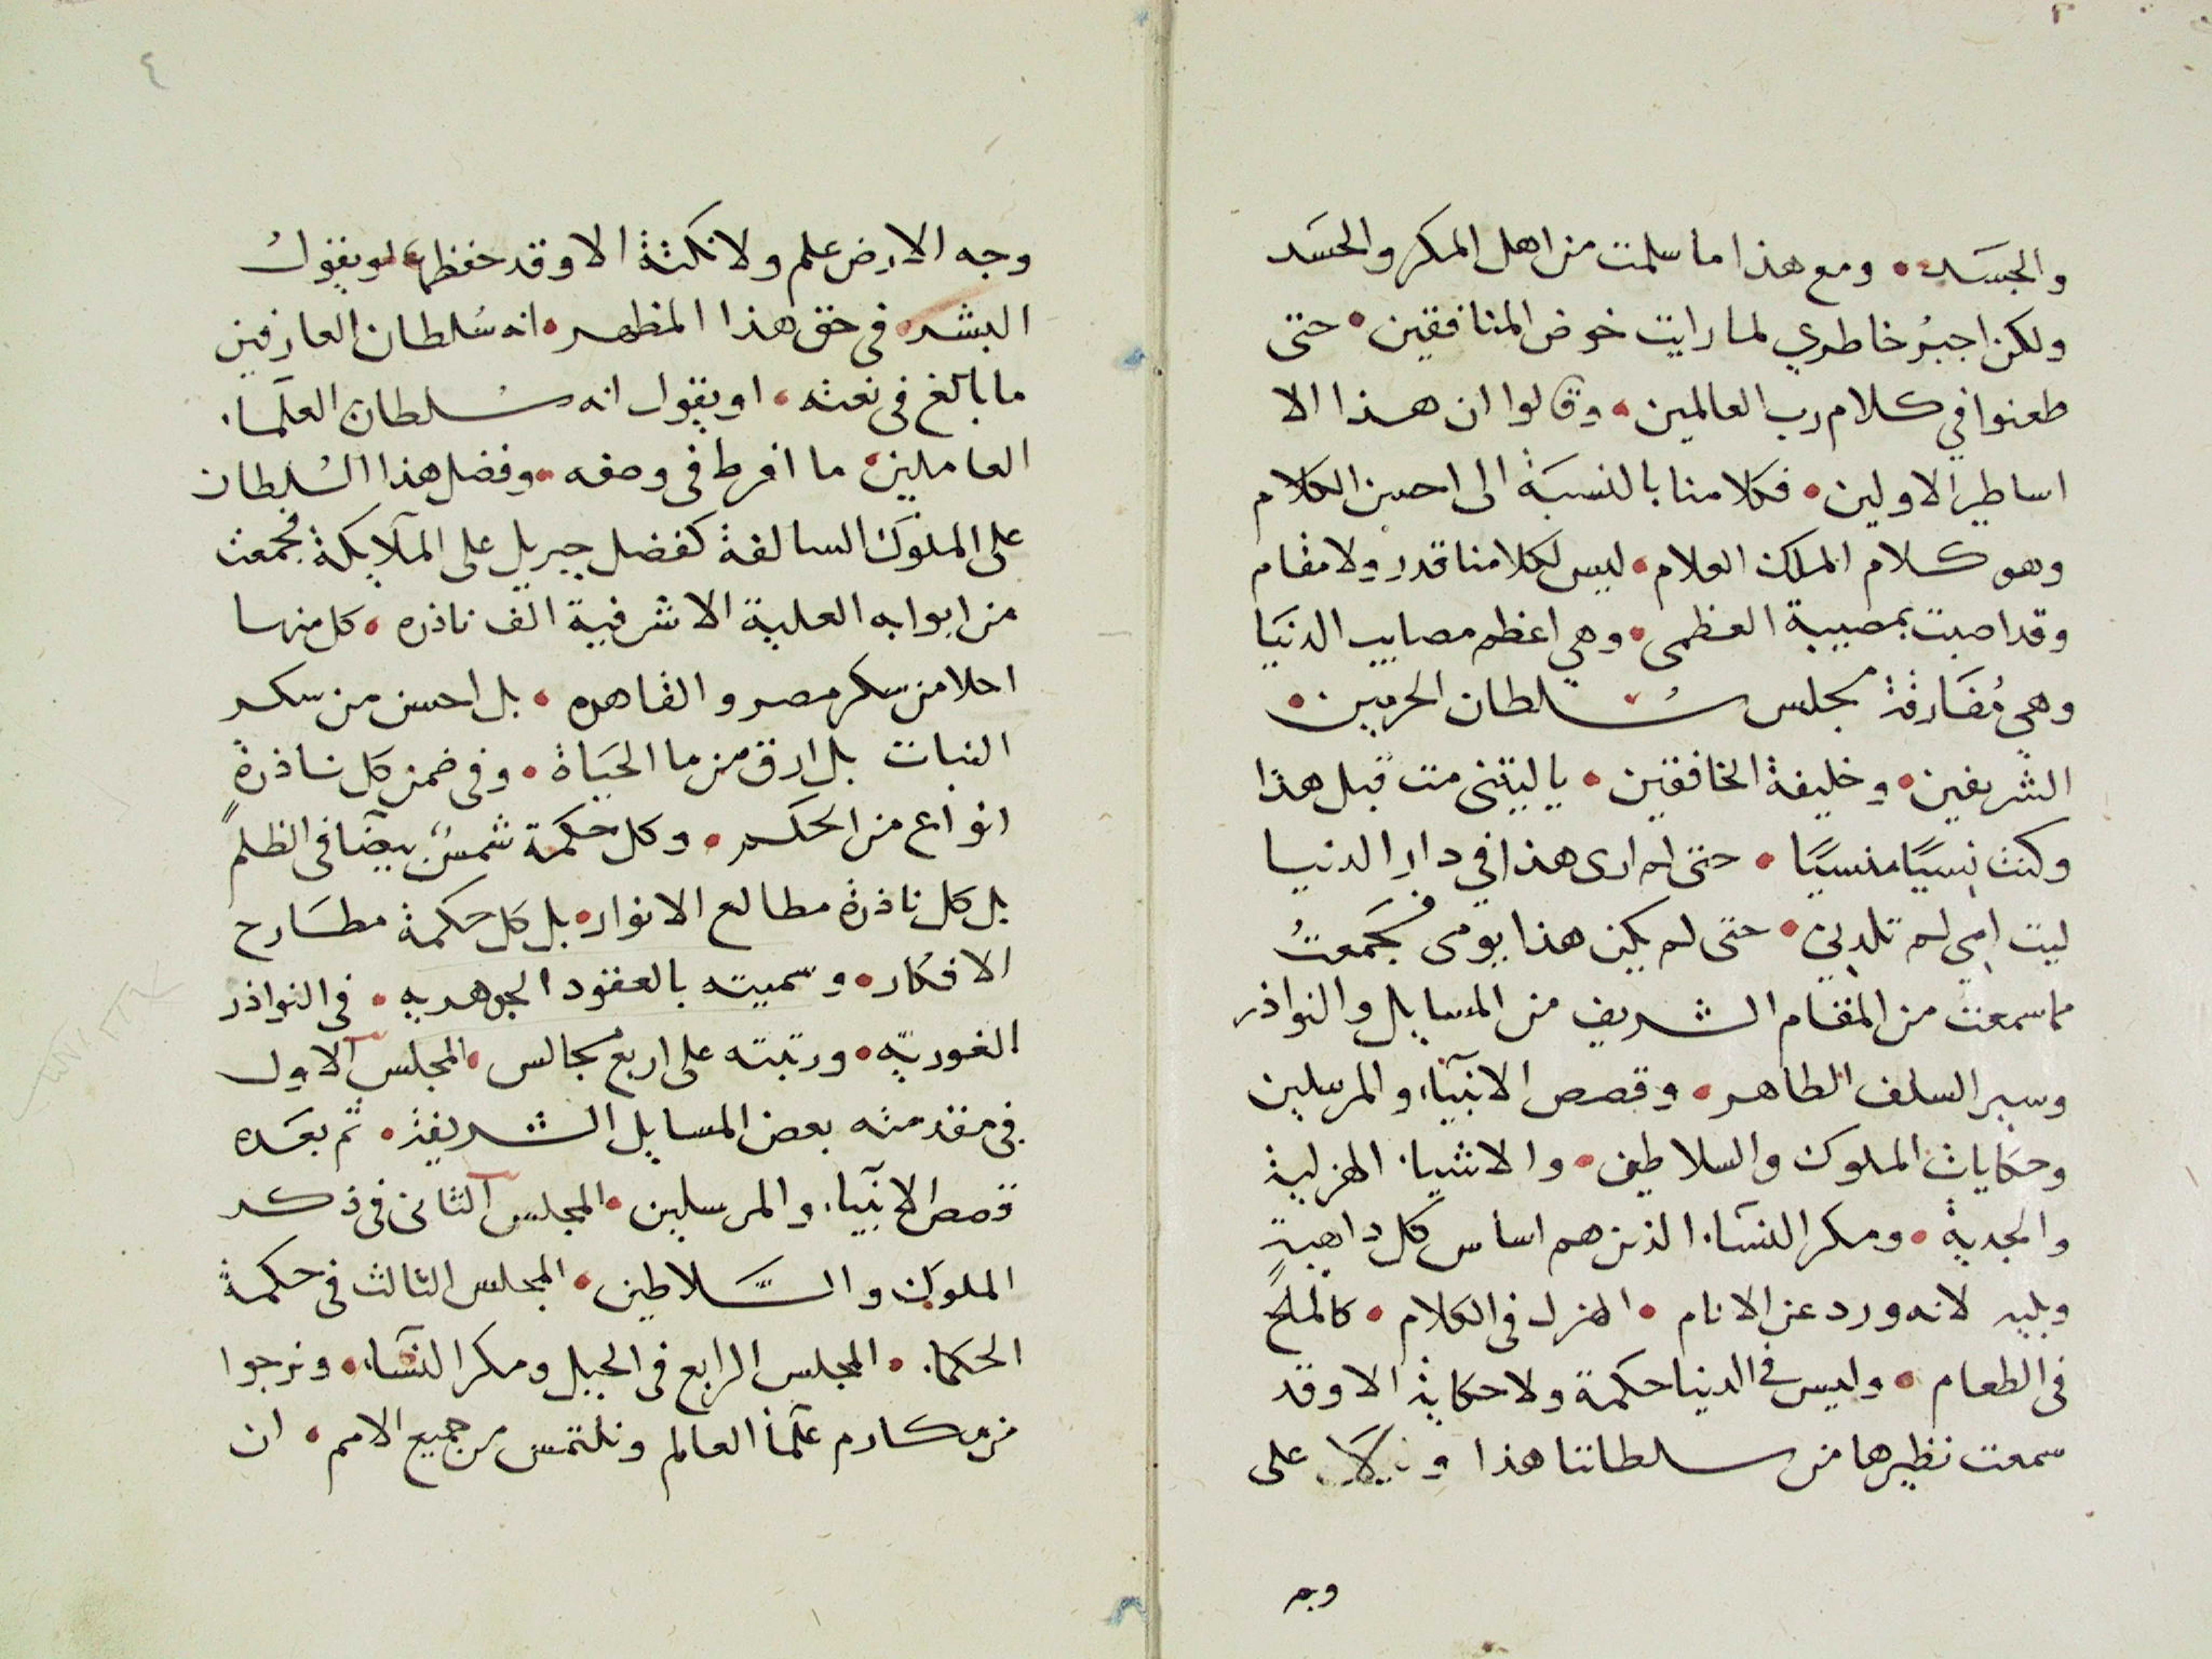 والجسَد • ومع هذا ما سلمت من اهل المكر والحسَد
ولكن اجبرُ خاطري لما رايت خوض المنافقين • حتى
طعنوا في كلام رب العالمين • وقالوا ان هذا الا
اساطير الاولين • فكلامنا بالنسبَة الى احسن الكلام
وهو كلام الملك العلام • ليس لكلامنا قدر ولا مقام
وقد اصبت بمصيبة العظمى • وهي اعظم مصايب الدنيَا
وهي مُفَارقة مجلس سُلطان الحرمين •
الشريفين • وخليفة الخافقين • يا ليتني مت قبل هذا
وكنت نسيًا منسيًا • حتى لم ارى هذا في دار الدنيا
ليت امي لم تلدني • حتى لم يكن هذا يومى فجَمعتُ
مما سمعت من المقام الشريف من المسايل والنواذر
وسير السلف الطاهر • وقصص الانبيآء والمرسلين
وحكايات الملوك والسلاطين • والاشياء الهزلية
والجدية • ومكر النسآء الذين هم اساس كل داهية
وبليه لانه ورد عن الانام • الهزل في الكلام • كالملح
فى الطعام • وليس في الدنيا حكمة ولا حكاية الا وقد
سمعت نظيرها من سلطاننا هذا و لا على
وجه
٤
وجه الارض علم ولا نكتة الا وقد حفظها • لو يقول
البشر • فى حق هذا المظهر • انه سُلطان العارفين
ما بالغ فى نعته • او يقول انه سُلطان العلمآء
العاملين • ما افرط فى وصفه • وفضل هذا السُلطان
على الملوك السالفة كفضل جبريل على الملآيكة فجمعت
من ابوابه العلية الاشرفية الف ناذره • كل منها
احلا من سكر مصر والقاهره • بل احسن من سكر
النبات بل ارق من ما الحيَاة • وفى ضمن كل ناذرةٍ
انواع من الحكم • وكل حكمة شمسٌ بيضآ فى الظلم
بل كل ناذرة مطالع الانوار • بل كل حكمة مطَارح
الافكار • وسميته بالعقود الجوهريه • فى النواذر
الغوريّه • ورتبته على اربع مجالس • المجلس الاول
فى مقدمته بعض المسايل الشريفة • ثم بعَده
قصص الانبيآء والمرسلين • المجلس الثانى فى ذكر
الملوك والسَّلاطين • المجلس الثالث فى حكمة
الحكماء • المجلس الرابع فى الحيل ومكر النسآء • ونرجوا
من مكارم علمآ العالم ونلتمس من جميع الامم • ان